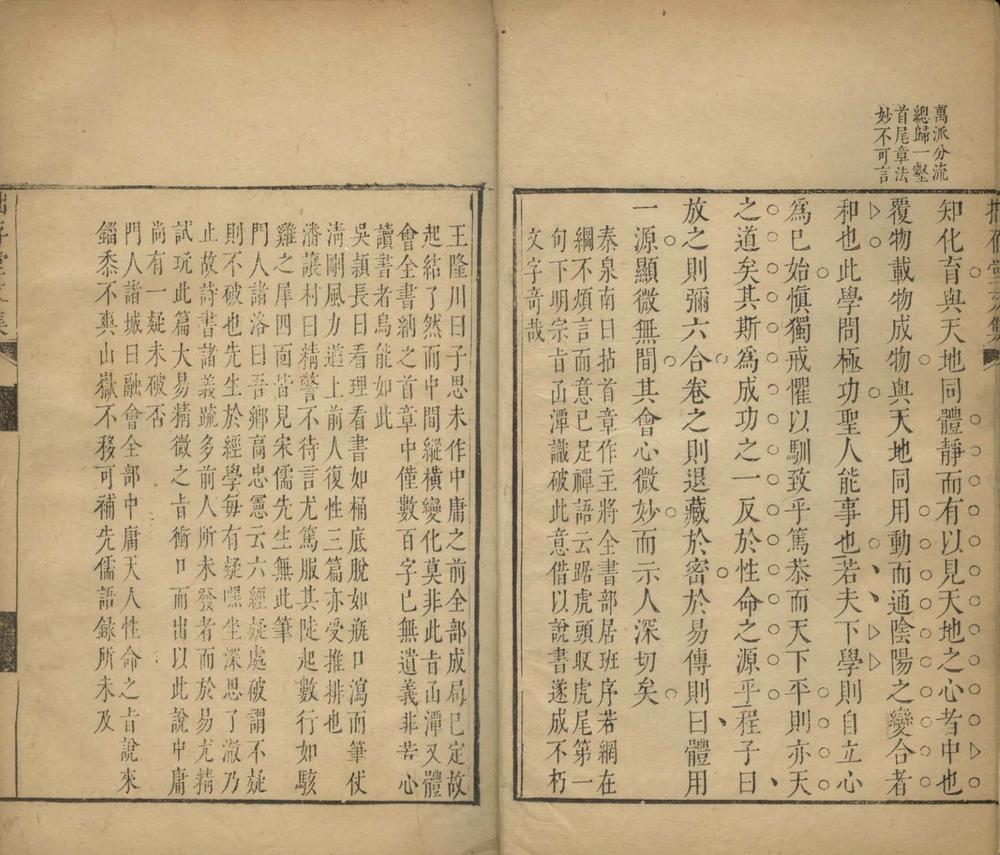 萬派分流
總歸一壑
首尾章法
妙不可言
知化育與天地同體靜而有以見天地之心者中也
覆物載物成物與天地同用動而通陰陽之變合者
和也此學問極功聖人能事也若夫下學則自立心
爲已始愼獨戒懼以馴致乎篤恭而天下平則亦天
之道矣其斯爲成功之一反於性命之源乎程子曰
放之則彌六合卷之則退藏於密於易傳則曰體用
一源顯微無間其會心微妙而示人深切矣
秦泉南曰拈首章作主將全書部居班序若網在
綱不煩言而意已足禪語云踞虎頭収虎尾第一
句下明宗旨函潭識破此意借以說書遂成不朽
文字奇哉
王隆川曰子思未作中庸之前全部成局已定故
起結了然而中間縱橫變化莫非此旨函潭又體
會全書納之首章中僅數百字已無遺義非苦心
讀書者烏能如此
吳頴長曰看理看書如桶底脫如瓶口瀉而筆伏
淸剛風力遒上前人復性三篇亦受推排也
潘讓村曰精警不待言尤篤服其陡起數行如駭
雞之犀四面皆見宋儒先生無此筆
門人諸洛曰吾鄉高忠憲云六經疑處破謂不疑
則不破也先生於經學每有疑嘿坐深思了澈乃
止故詩書諸義疏多前人所未發者而於易尤精
試玩此篇大易精微之旨衝口而出以此說中庸
尚有一疑未破否
門人諸城曰融會全部中庸天人性命之旨說來
錙黍不爽山嶽不移可補先儒語録所未及